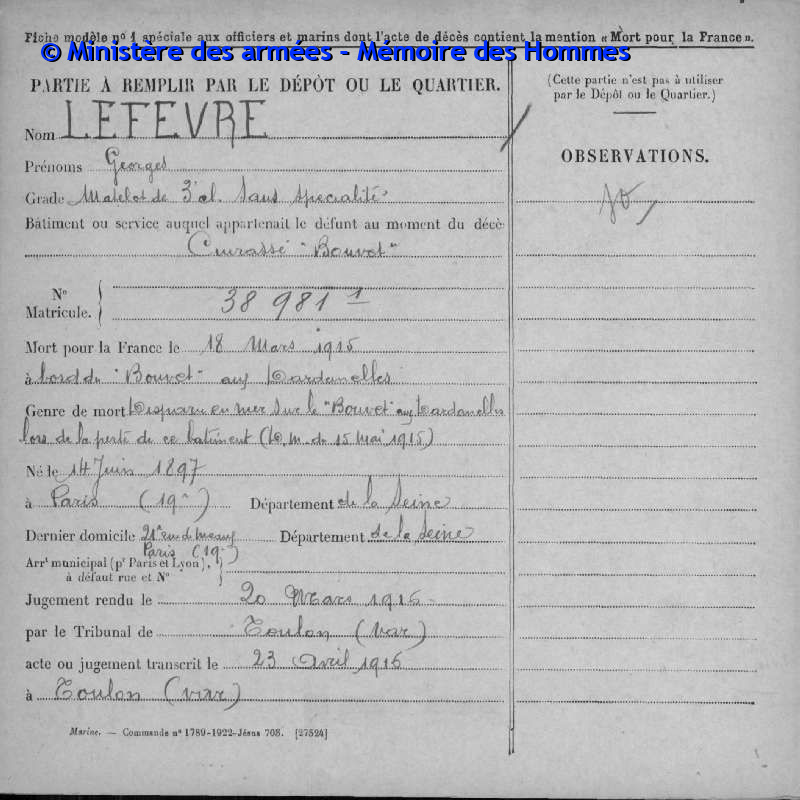 Fiche modèle nº 1 spéciale aux officiers et marins dont l'acte de décès contient la mention « Mort pour la France ».
© Ministère des armées - Mémoire des Hommes
PARTIE À REMPLIR PAR LE DÉPÔT OU LE QUARTIER.
Nom LEFEVRE
Prénoms Georges
Grade Matelot de 3e cl. Sans spécialité
Bâtiment ou service auquel appartenait le défunt au moment du décè
Cuirassé "Bouvet"
Nº
Matricule. 38 981 1
Mort pour la France le 18 Mars 1915
à bord du "Bouvet" aux Dardanelles
Genre de mort Disparu en mer sur le "Bouvet" aux Dardanelles
lors de la perte de ce bâtiment (D. m. du 15 Mai 1915)
Né le 14 Juin 1897
à Paris (19e) Département de la Seine
Dernier domicile 21 rue de meaux Département de la Seine
Paris (19e)
Arrt municipal (pr Paris et Lyon),
à défaut rue et Nº
Jugement rendu le 20 Mars 1916
par le Tribunal de Toulon (Var)
acte ou jugement transcrit le 23 Avril 1916
à Toulon (var)
Marine. — Commande nº 1789-1922-Jésus 708. [27524]
(Cette partie n'est pas à utiliser
par le Dépôt ou le Quartier.)
OBSERVATIONS.